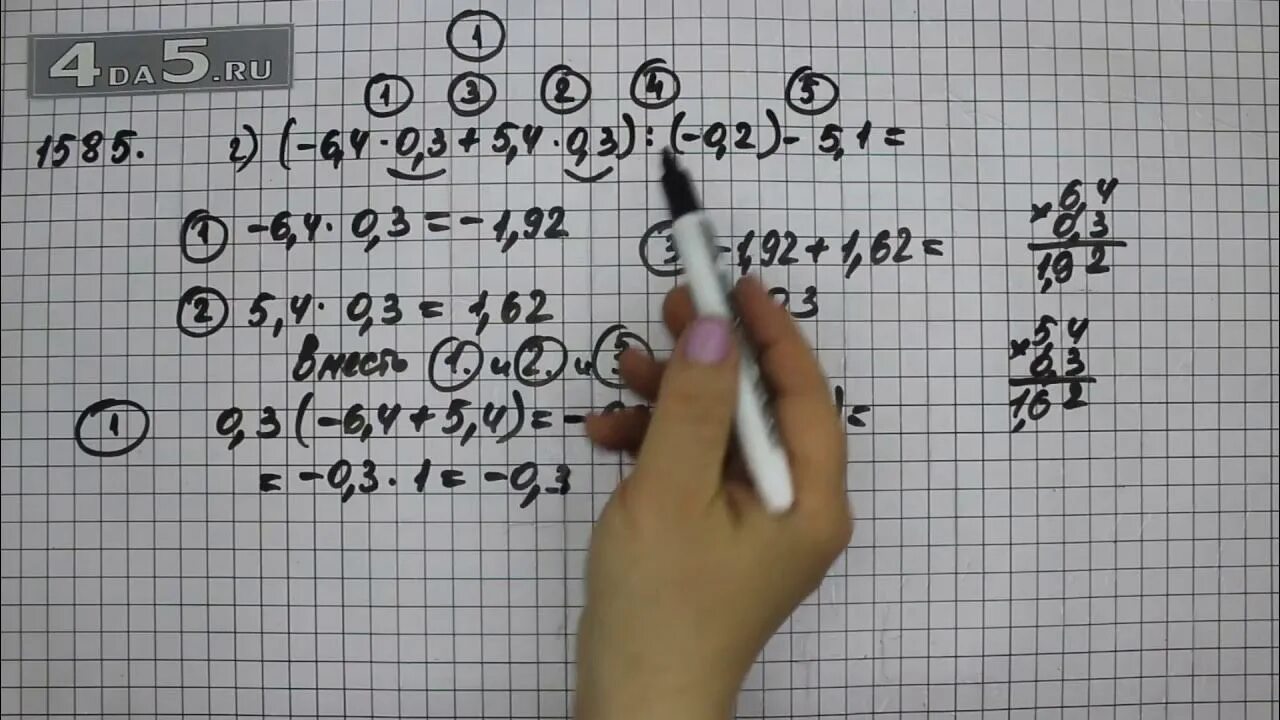 4DA5.RU
1
1 3 2 4 5
1585. г) (-6,4 · 0,3 + 5,4 · 0,3) : (-0,2) - 5,1 =
1 -6,4 · 0,3 = -1,92
2 5,4 · 0,3 = 1,62
Вместо 1. и 2. и
1 0,3 (-6,4 + 5,4) = -
= -0,3 · 1 = -0,3
3 -1,92 + 1,62 =
0,3
× 6,4
0,3
1,92
× 5,4
0,3
1,62